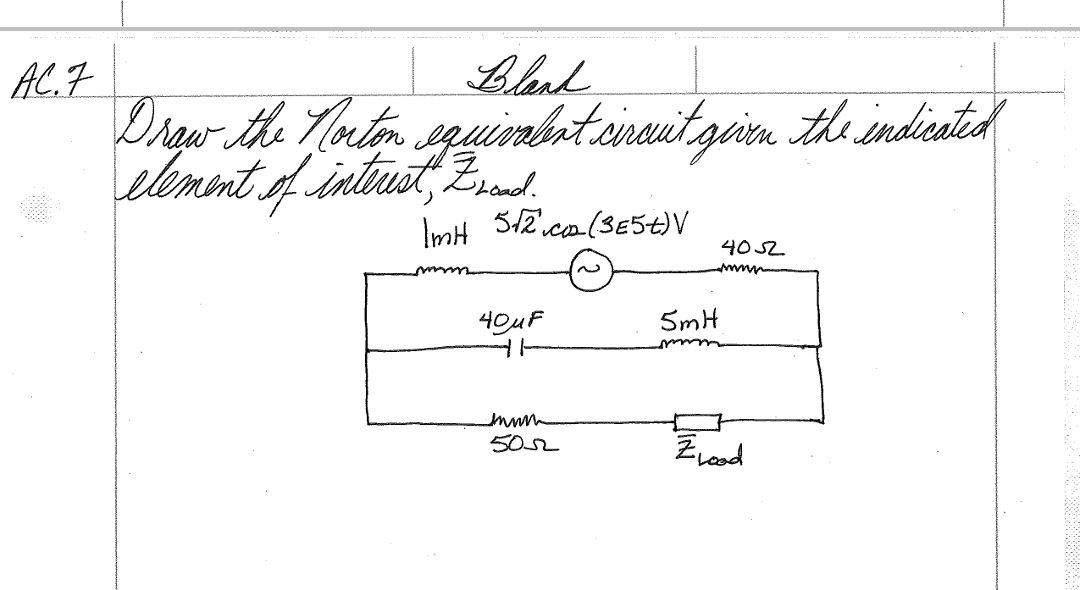 AC.7
Bland
Draw the Norton equivalent circuit given the indicated
element of interest, Z̅Load.
1mH 5√2 cos(3E5t)V
40Ω
40µF 5mH
50Ω
Z̅Load